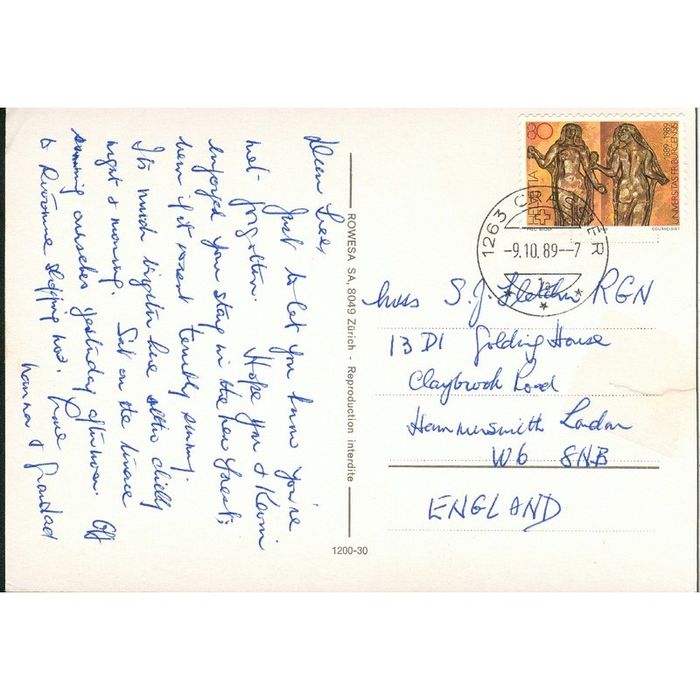 Just to let you know you're
not forgotten. Hope you & Kevin
enjoyed your stay in the New Forest,
here it wasnt terribly sunny.
Its much brighter here altho chilly
night & morning. Sat on the terrace
sunning ourselves yesterday afternoon. Off
to Divonne shopping now. Love
Nanna & Grandad
ROWESA SA, 8049 Zürich - Reproduction interdite
1200-30
80
HELVETIA
1889-1989
UNIVERSITAS FRIBURGENSIS
COURVOISIER
1263 CRASSIER
-9.10.89--7
1a
Miss S.J. Fletcher RGN
13 D1 Golding House
Claybrook Road
Hammersmith London
W6 8NB
ENGLAND